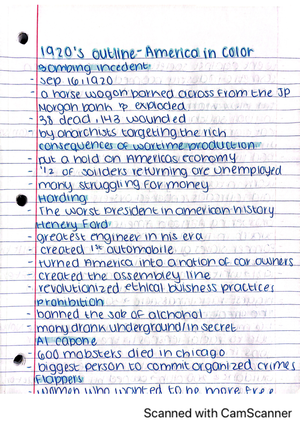 1920's outline-America in color
Bombing incedent
- sep 16, 1920
- a horse wagon borned across from the JP
Morgan bank & exploded
- 38 dead, 143 wounded
- by anarchists targeting the rich
consequences of wartime production
- put a hold on Americas economy
- 1/2 of soliders returning are unemployed
- many struggling for money
Harding
- The worst president in american history
Henery Ford
- greatest engineer in his era
- created 1st automobile
- turned America into a nation of car owners
- created the assembley line
- revolutionized ethical buisness practices
Prohibition
- banned the sale of alchohol
- many drank underground/in secret
Al capone
- 600 mobsters died in chicago
- biggest person to commit organized crimes
Flappers
- women who wanted to be more free
Scanned with CamScanner